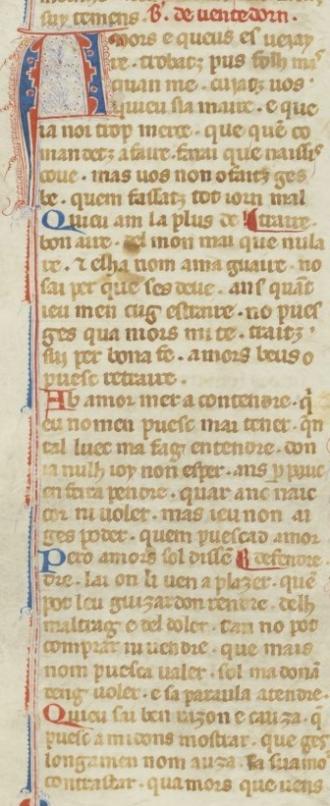 suy temens. B'. de uentedorn.
Amors e queus es ueiay
re. trobatz pus folh mas
quan me. cuiatz uos.
queu sia maire. e que
ia noi trop merce. que quem co
mandetz a faire. farai que naissis
coue. mas uos non ofaitz ges
be. quem fassatz tot iorn mal
Quieu am la plus de traire.
bon aire. del mon mai que nula
re. 7 elha nom ama guaire. no
sai per que ses deue. ans quant
ieu men cug estraire. no pues
ges qua mors mi te. traitz
suy per bona fe. amors beus o
puesc retraire.
Ab amor mer a contendre. q̄
eu no men puesc mai tener. qn
tal luec ma fag entendre. don
ia nulh ioy non esper. ans
pendre. quar anc naic
cor ni uoler. mas ieu non ai
ges poder. quem puescad amor
Pero amors sol dissen defendre
dre. lai on li uen a plazer. quem
pot leu guizardon rendre. delh
maltrag e del doler. tan no pot
comprar ni uendre. que mais
nom puesca ualer. sol ma dona
deng uoler. e sa paraula atendre.
Quieu sai ben razon e cauza. q̄
puesc a midons mostrar. que ges
longamen nom auza. sa suamor
contrastar. quamors que uens